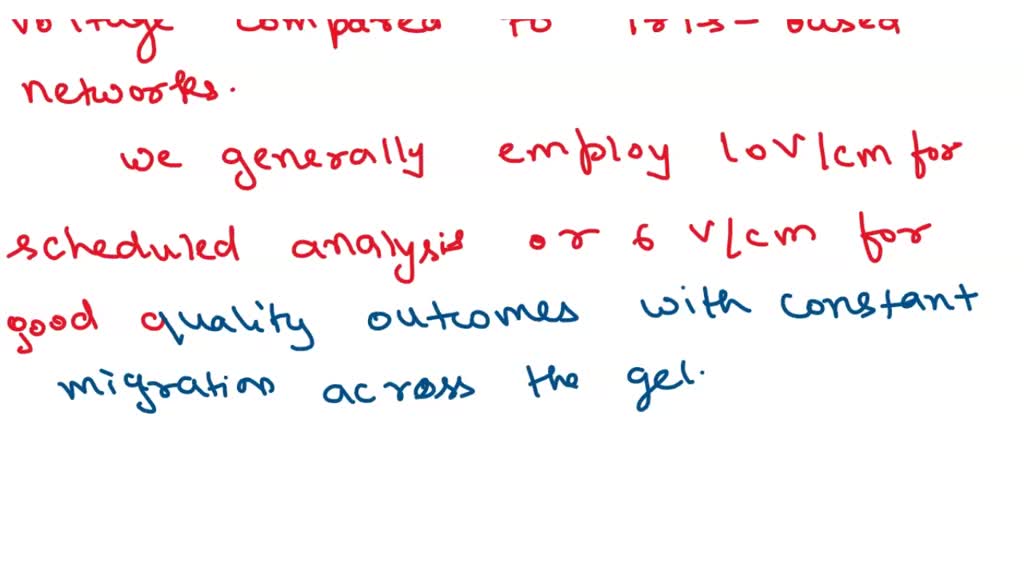 voltage compared to Tris-based
networks.
we generally employ 10V/cm for
scheduled analysis or 6 V/cm for
good quality outcomes with constant
migration across the gel.